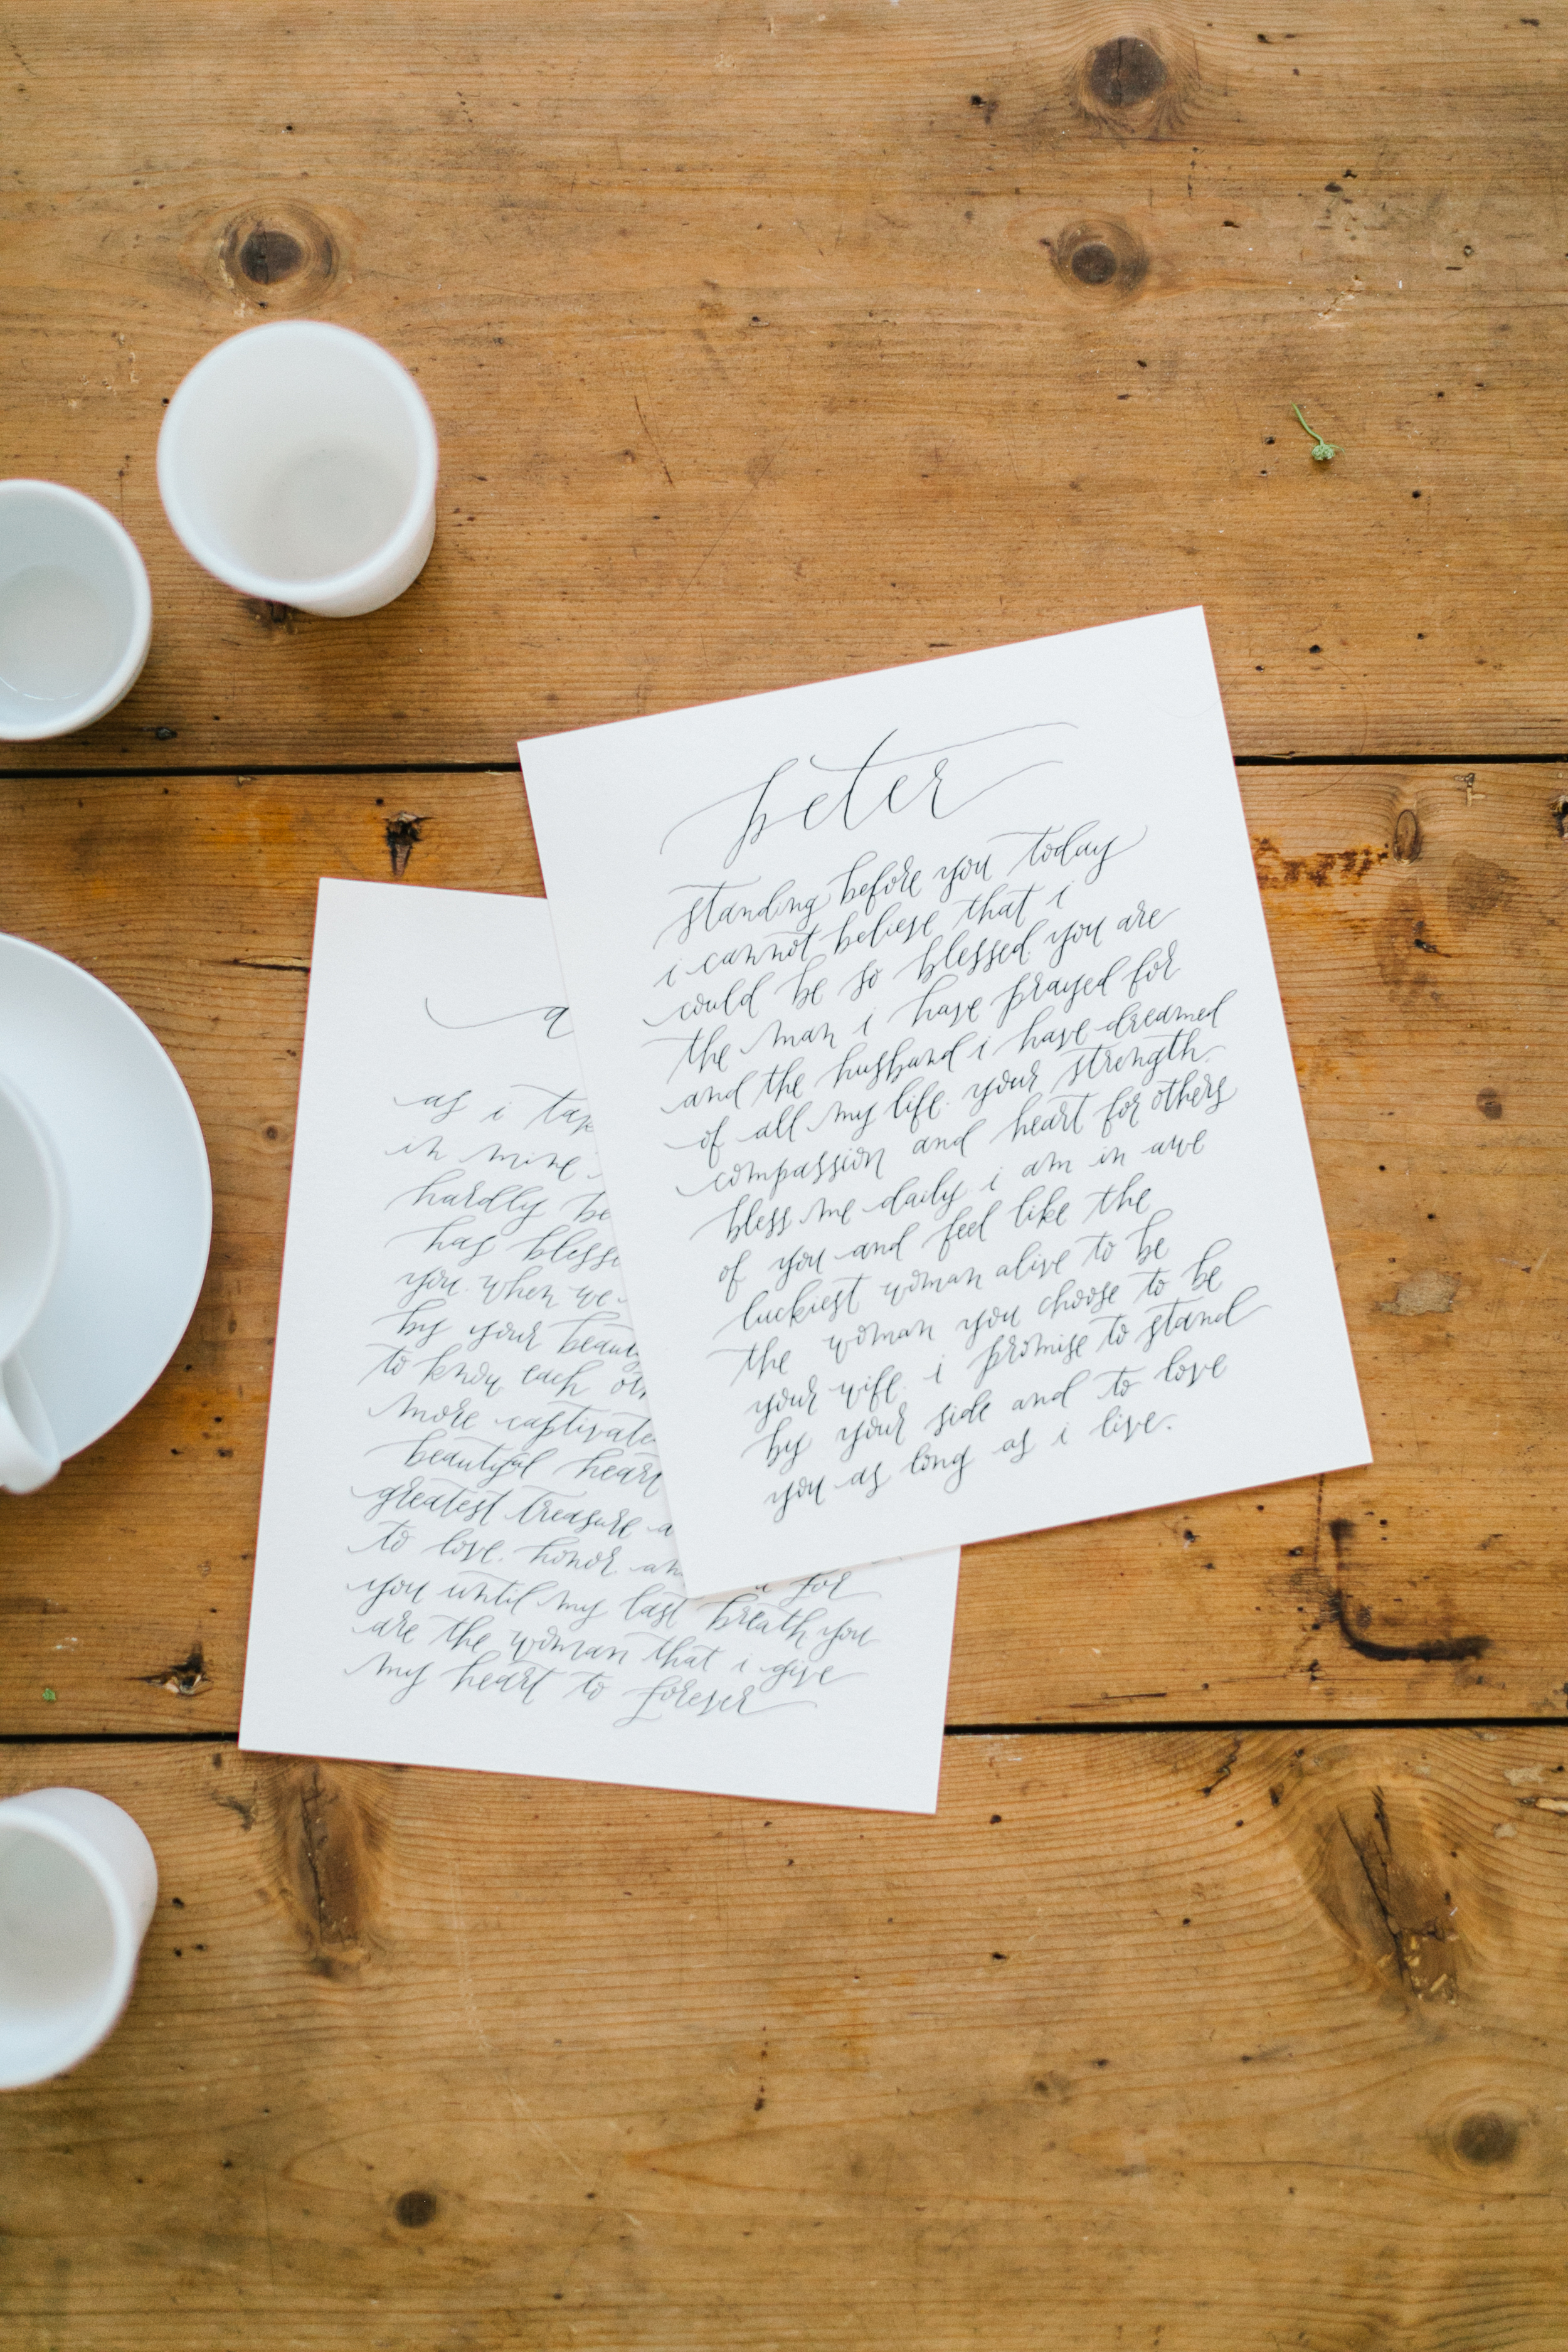 peter
standing before you today
i cannot believe that i
could be so blessed. you are
the man i have prayed for
and the husband i have dreamed
of all my life. your strength,
compassion and heart for others
bless me daily. i am in awe
of you and feel like the
luckiest woman alive to be
the woman you choose to be
your wife. i promise to stand
by your side and to love
you as long as i live.
a
as i
in mine
hardly
has
you. when we
by your
to know each
more
beautiful heart
greatest treasure
to love, honor
for
you until my last breath you
are the woman that i give
my heart to forever